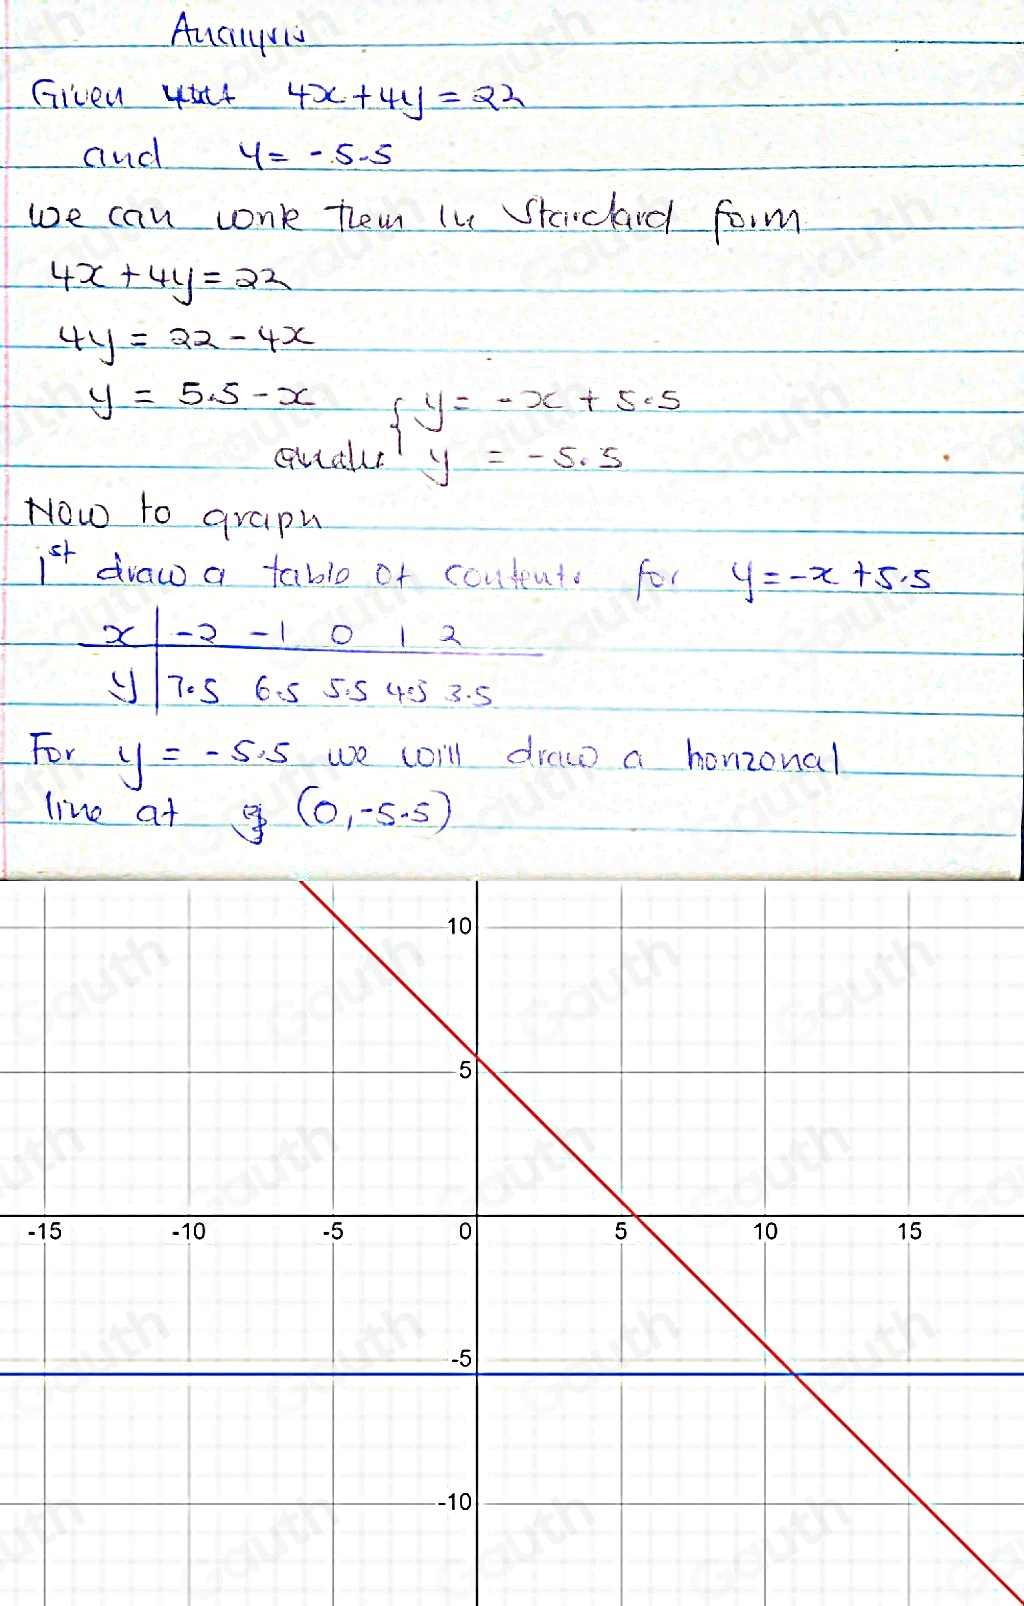 Analysis
Given that 4x + 4y = 22
and y = -5.5
We can write them in Standard form
4x + 4y = 22
4y = 22 - 4x
y = 5.5 - x { y = -x + 5.5
y = -5.5
Now to graph
1st draw a table of contents for y = -x + 5.5
x | -2 -1 0 1 2
y | 7.5 6.5 5.5 4.5 3.5
For y = -5.5 we will draw a horizonal
line at (0, -5.5)
10
5
-15 -10 -5 0 5 10 15
-5
-10
Gauth